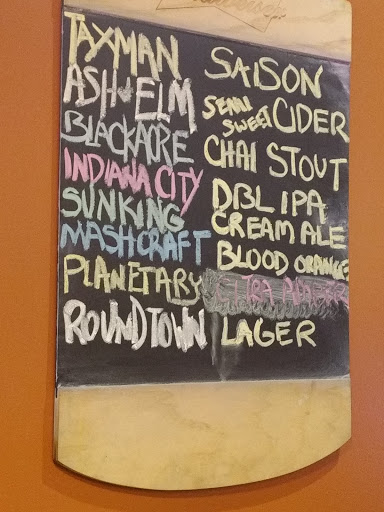 TAXMAN SAISON
ASH + ELM SEMI SWEET CIDER
BLACKACRE CHAI STOUT
INDIANA CITY DBL IPA
SUN KING CREAM ALE
MASHCRAFT BLOOD ORANGE
PLANETARY
ROUNDTOWN LAGER